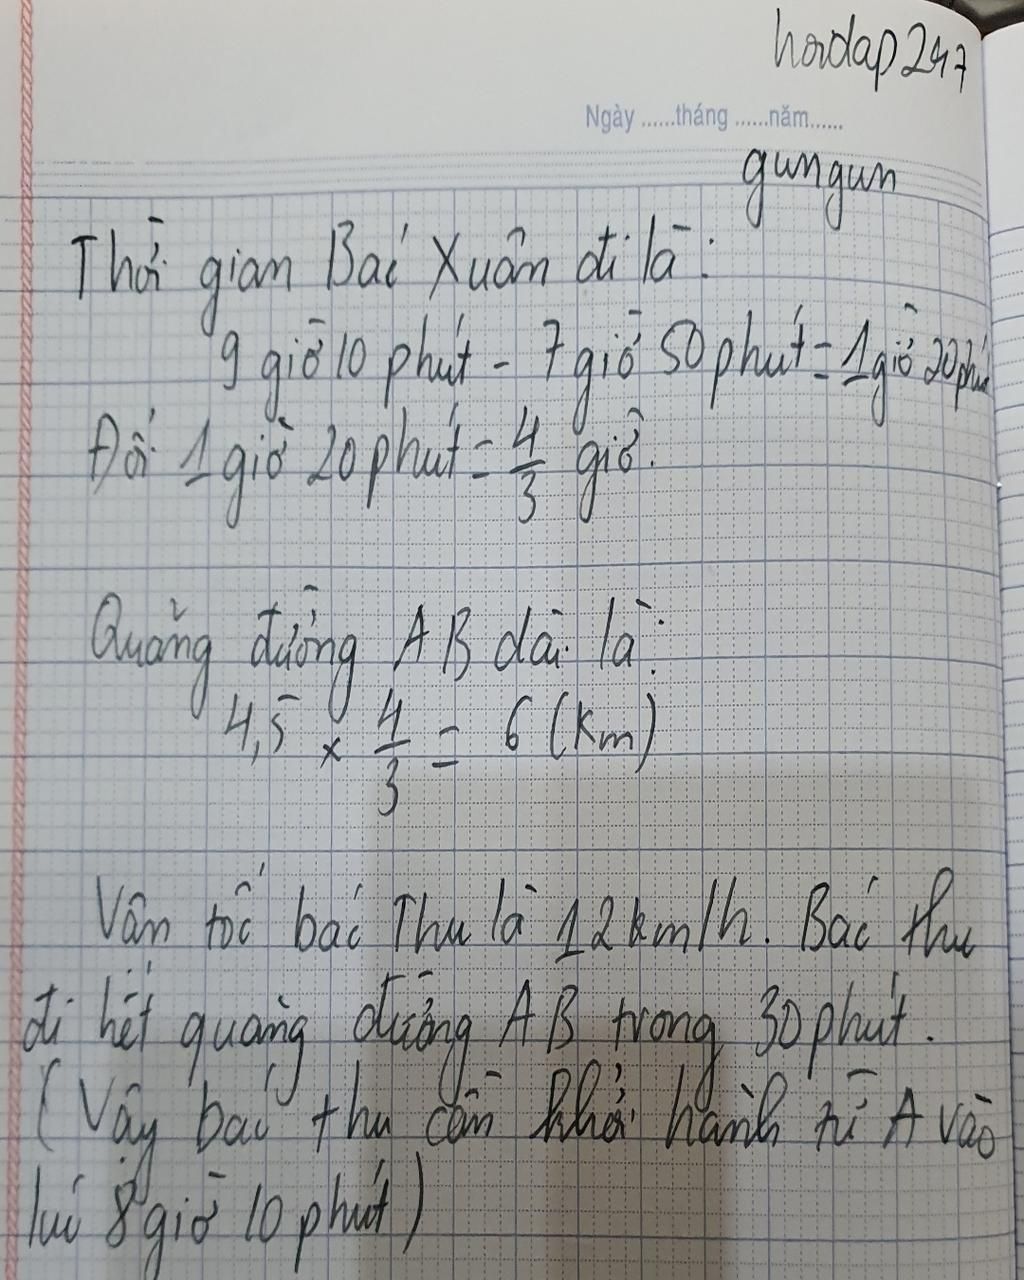 hoidap247
Ngày ......tháng ......năm......
gungun
Thời gian Bác Xuân đi là:
9 giờ 10 phút - 7 giờ 50 phút = 1 giờ 20 phút
Đổi 1 giờ 20 phút = 4/3 giờ.
Quãng đường AB dài là:
4,5 x 4/3 = 6 (km)
Vân tốc bác Thu là 12 km/h. Bác thu
đi hết quãng đường AB trong 30 phút.
(Vây bác thu cần khởi hành từ A vào
lúc 8 giờ 10 phút)